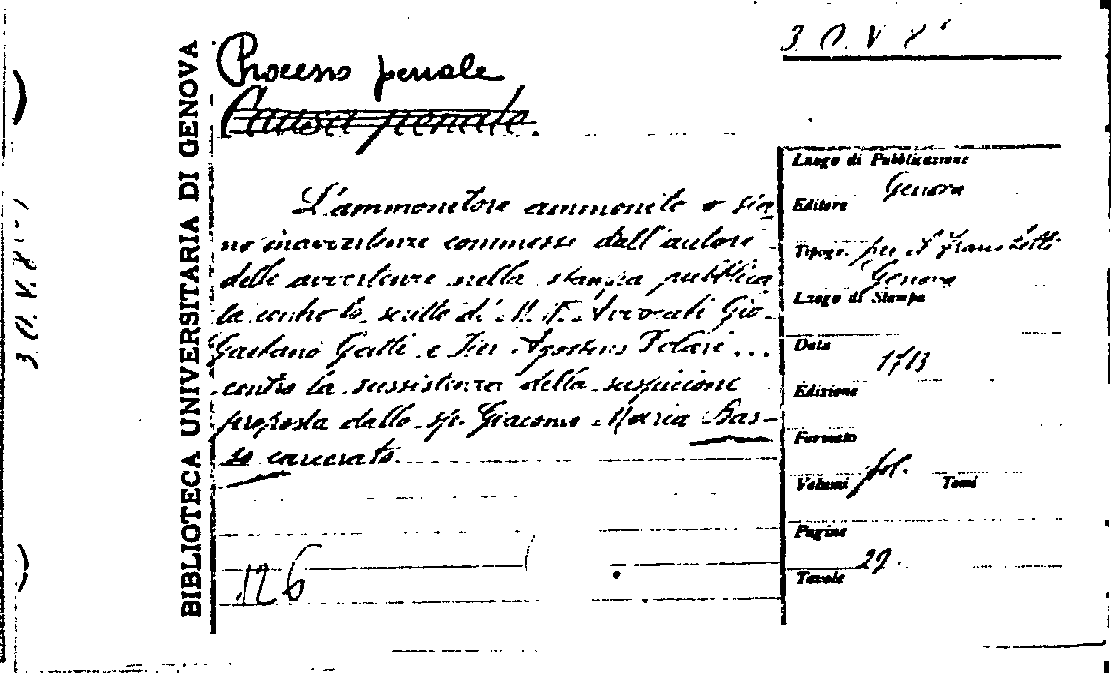 3. O. V. 8
Processo penale
Causa penale.
BIBLIOTECA UNIVERSITARIA DI GENOVA
3. O. V. 8
L'ammonitore ammonito o sia
no inavvertenze commesse dall'autore
delle avvertenze nella stampa pubblica
ta contro le scritte di M. F. Avvocati Gio.
Gaetano Gatti e Pier Agostino Solari...
contro la sussistenza della suspicione
proposta dallo sp. Giacomo Maria Bas-
so carcerato.
126
Luogo di Pubblicazione
Genova
Editore
Tipogr. per
Genova
Luogo di Stampa
Data
1713
Edizione
Formato
Volumi fol. Tomi
Pagine
29.
Tavole